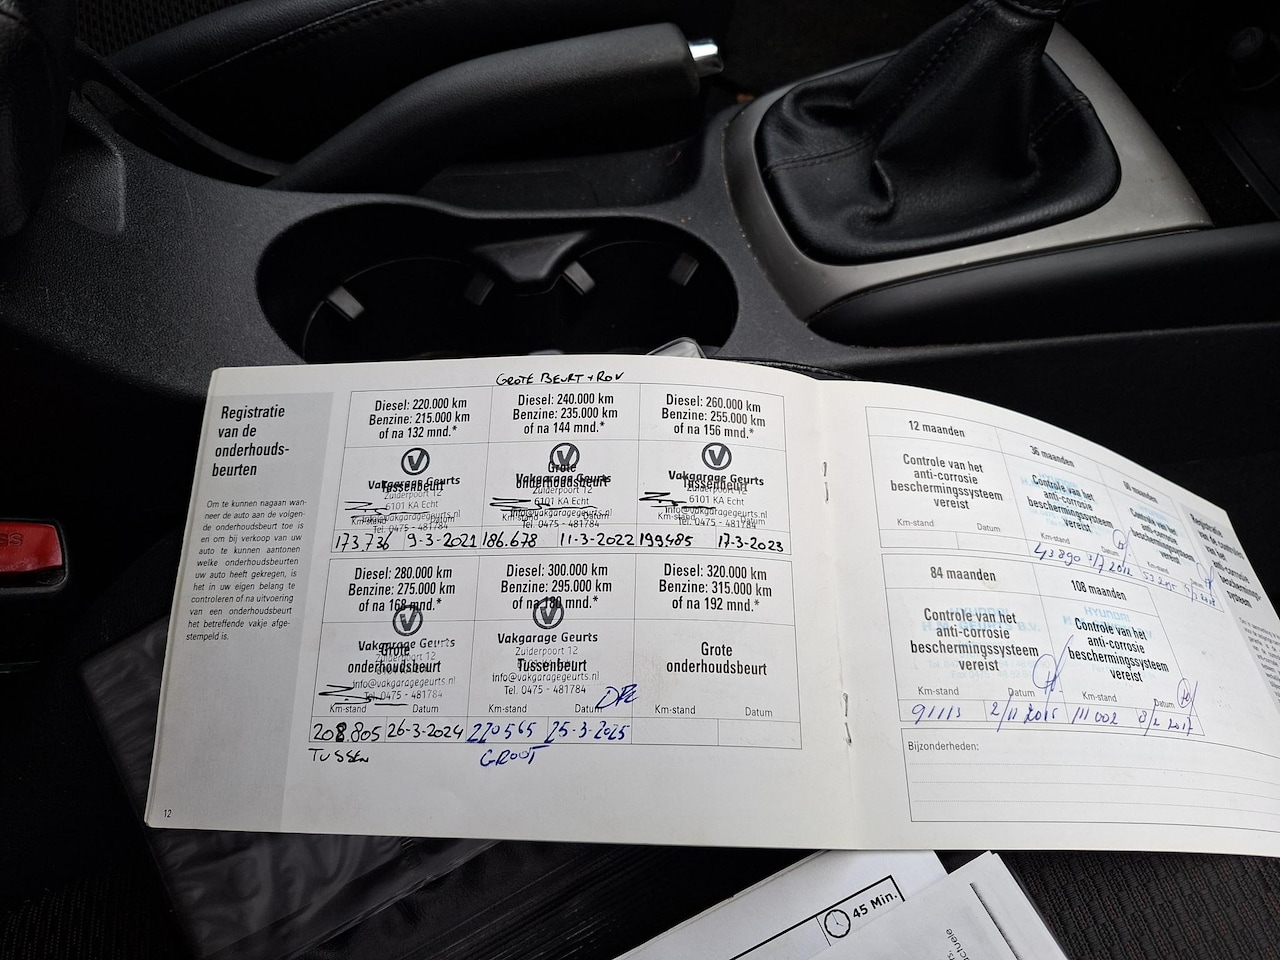 Registratie
van de
onderhouds-
beurten
Om te kunnen nagaan wan-
neer de auto aan de volgen-
de onderhoudsbeurt toe is
en om bij verkoop van uw
auto te kunnen aantonen
welke onderhoudsbeurten
uw auto heeft gekregen, is
het in uw eigen belang te
controleren of na uitvoering
van een onderhoudsbeurt
het betreffende vakje afge-
stempeld is.
12
GROTE BEURT + ROV
Diesel: 220.000 km
Benzine: 215.000 km
of na 132 mnd.*
Vakgarage Geurts
Tussenbeurt
Zuiderpoort 12
6101 KA Echt
info@vakgaragegeurts.nl
Km-stand Datum
Tel. 0475 - 481784
173.736 9-3-2021
Diesel: 240.000 km
Benzine: 235.000 km
of na 144 mnd.*
Grote
Vakgarage Geurts
onderhoudsbeurt
Zuiderpoort 12
6101 KA Echt
info@vakgaragegeurts.nl
Km-stand Datum
Tel. 0475 - 481784
186.678 11-3-2022
Diesel: 260.000 km
Benzine: 255.000 km
of na 156 mnd.*
Vakgarage Geurts
Tussenbeurt
Zuiderpoort 12
6101 KA Echt
info@vakgaragegeurts.nl
Km-stand Datum
Tel. 0475 - 481784
199.485 17-3-2023
Diesel: 280.000 km
Benzine: 275.000 km
of na 168 mnd.*
Vakgarage Geurts
Grote
Zuiderpoort 12
onderhoudsbeurt
info@vakgaragegeurts.nl
Tel. 0475 - 481784
Km-stand Datum
208.805 26-3-2024
TUSSEN
Diesel: 300.000 km
Benzine: 295.000 km
of na 180 mnd.*
Vakgarage Geurts
Zuiderpoort 12
Tussenbeurt
info@vakgaragegeurts.nl
Tel. 0475 - 481784
Km-stand Datum
220565 25-3-2025
GROOT
Diesel: 320.000 km
Benzine: 315.000 km
of na 192 mnd.*
Grote
onderhoudsbeurt
Km-stand Datum
12 maanden
Controle van het
anti-corrosie
beschermingssysteem
vereist
Km-stand Datum
36 maanden
Controle van het
anti-corrosie
beschermingssysteem
vereist
Km-stand Datum
43890
60 maanden
Controle van het
anti-corrosie
beschermingssysteem
vereist
Km-stand Datum
84 maanden
HYUNDAI
Controle van het
anti-corrosie
beschermingssysteem
vereist
Km-stand Datum
91113 2/11 2015
108 maanden
HYUNDAI
Controle van het
anti-corrosie
beschermingssysteem
vereist
Km-stand Datum
111 002 8/2 2017
Bijzonderheden:
45 Min.